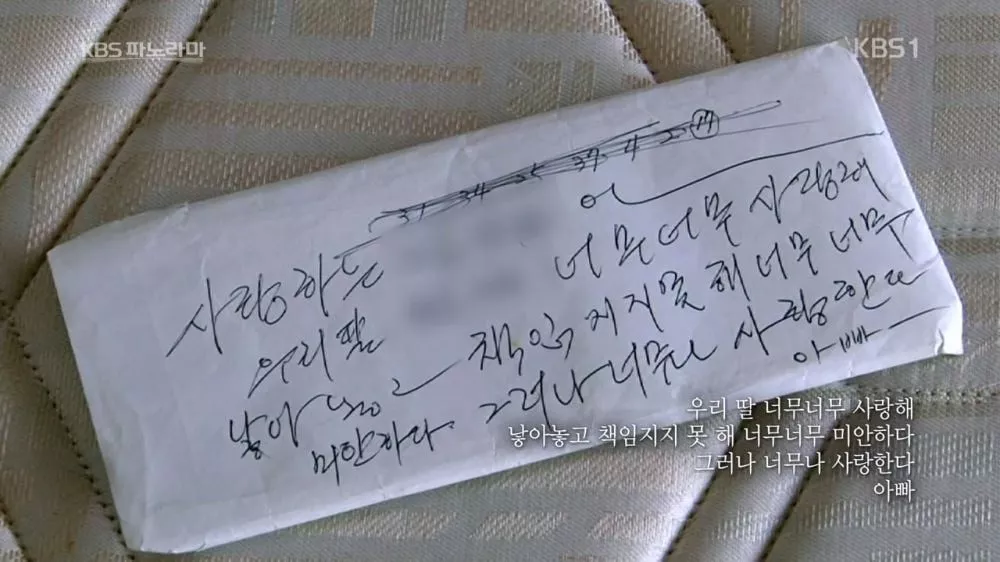 KBS 파노라마
KBS1
31 34 25 37 4 2 17
사랑하는 너무너무 사랑해
우리 딸
낳아 놓고 책임지지 못해 너무 너무
미안하다. 그러나 너무나 사랑한다
아빠
우리 딸 너무너무 사랑해
낳아놓고 책임지지 못 해 너무너무 미안하다
그러나 너무나 사랑한다
아빠